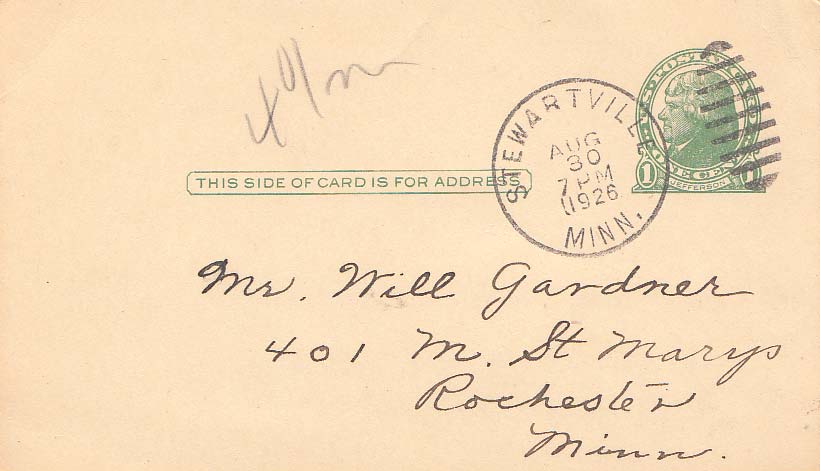 U.S. POSTAGE
1 JEFFERSON 1
STEWARTVILLE
AUG
30
7 PM
1926
MINN.
THIS SIDE OF CARD IS FOR ADDRESS
Mr. Will Gardner
401 M. St Marys
Rochester
Minn.